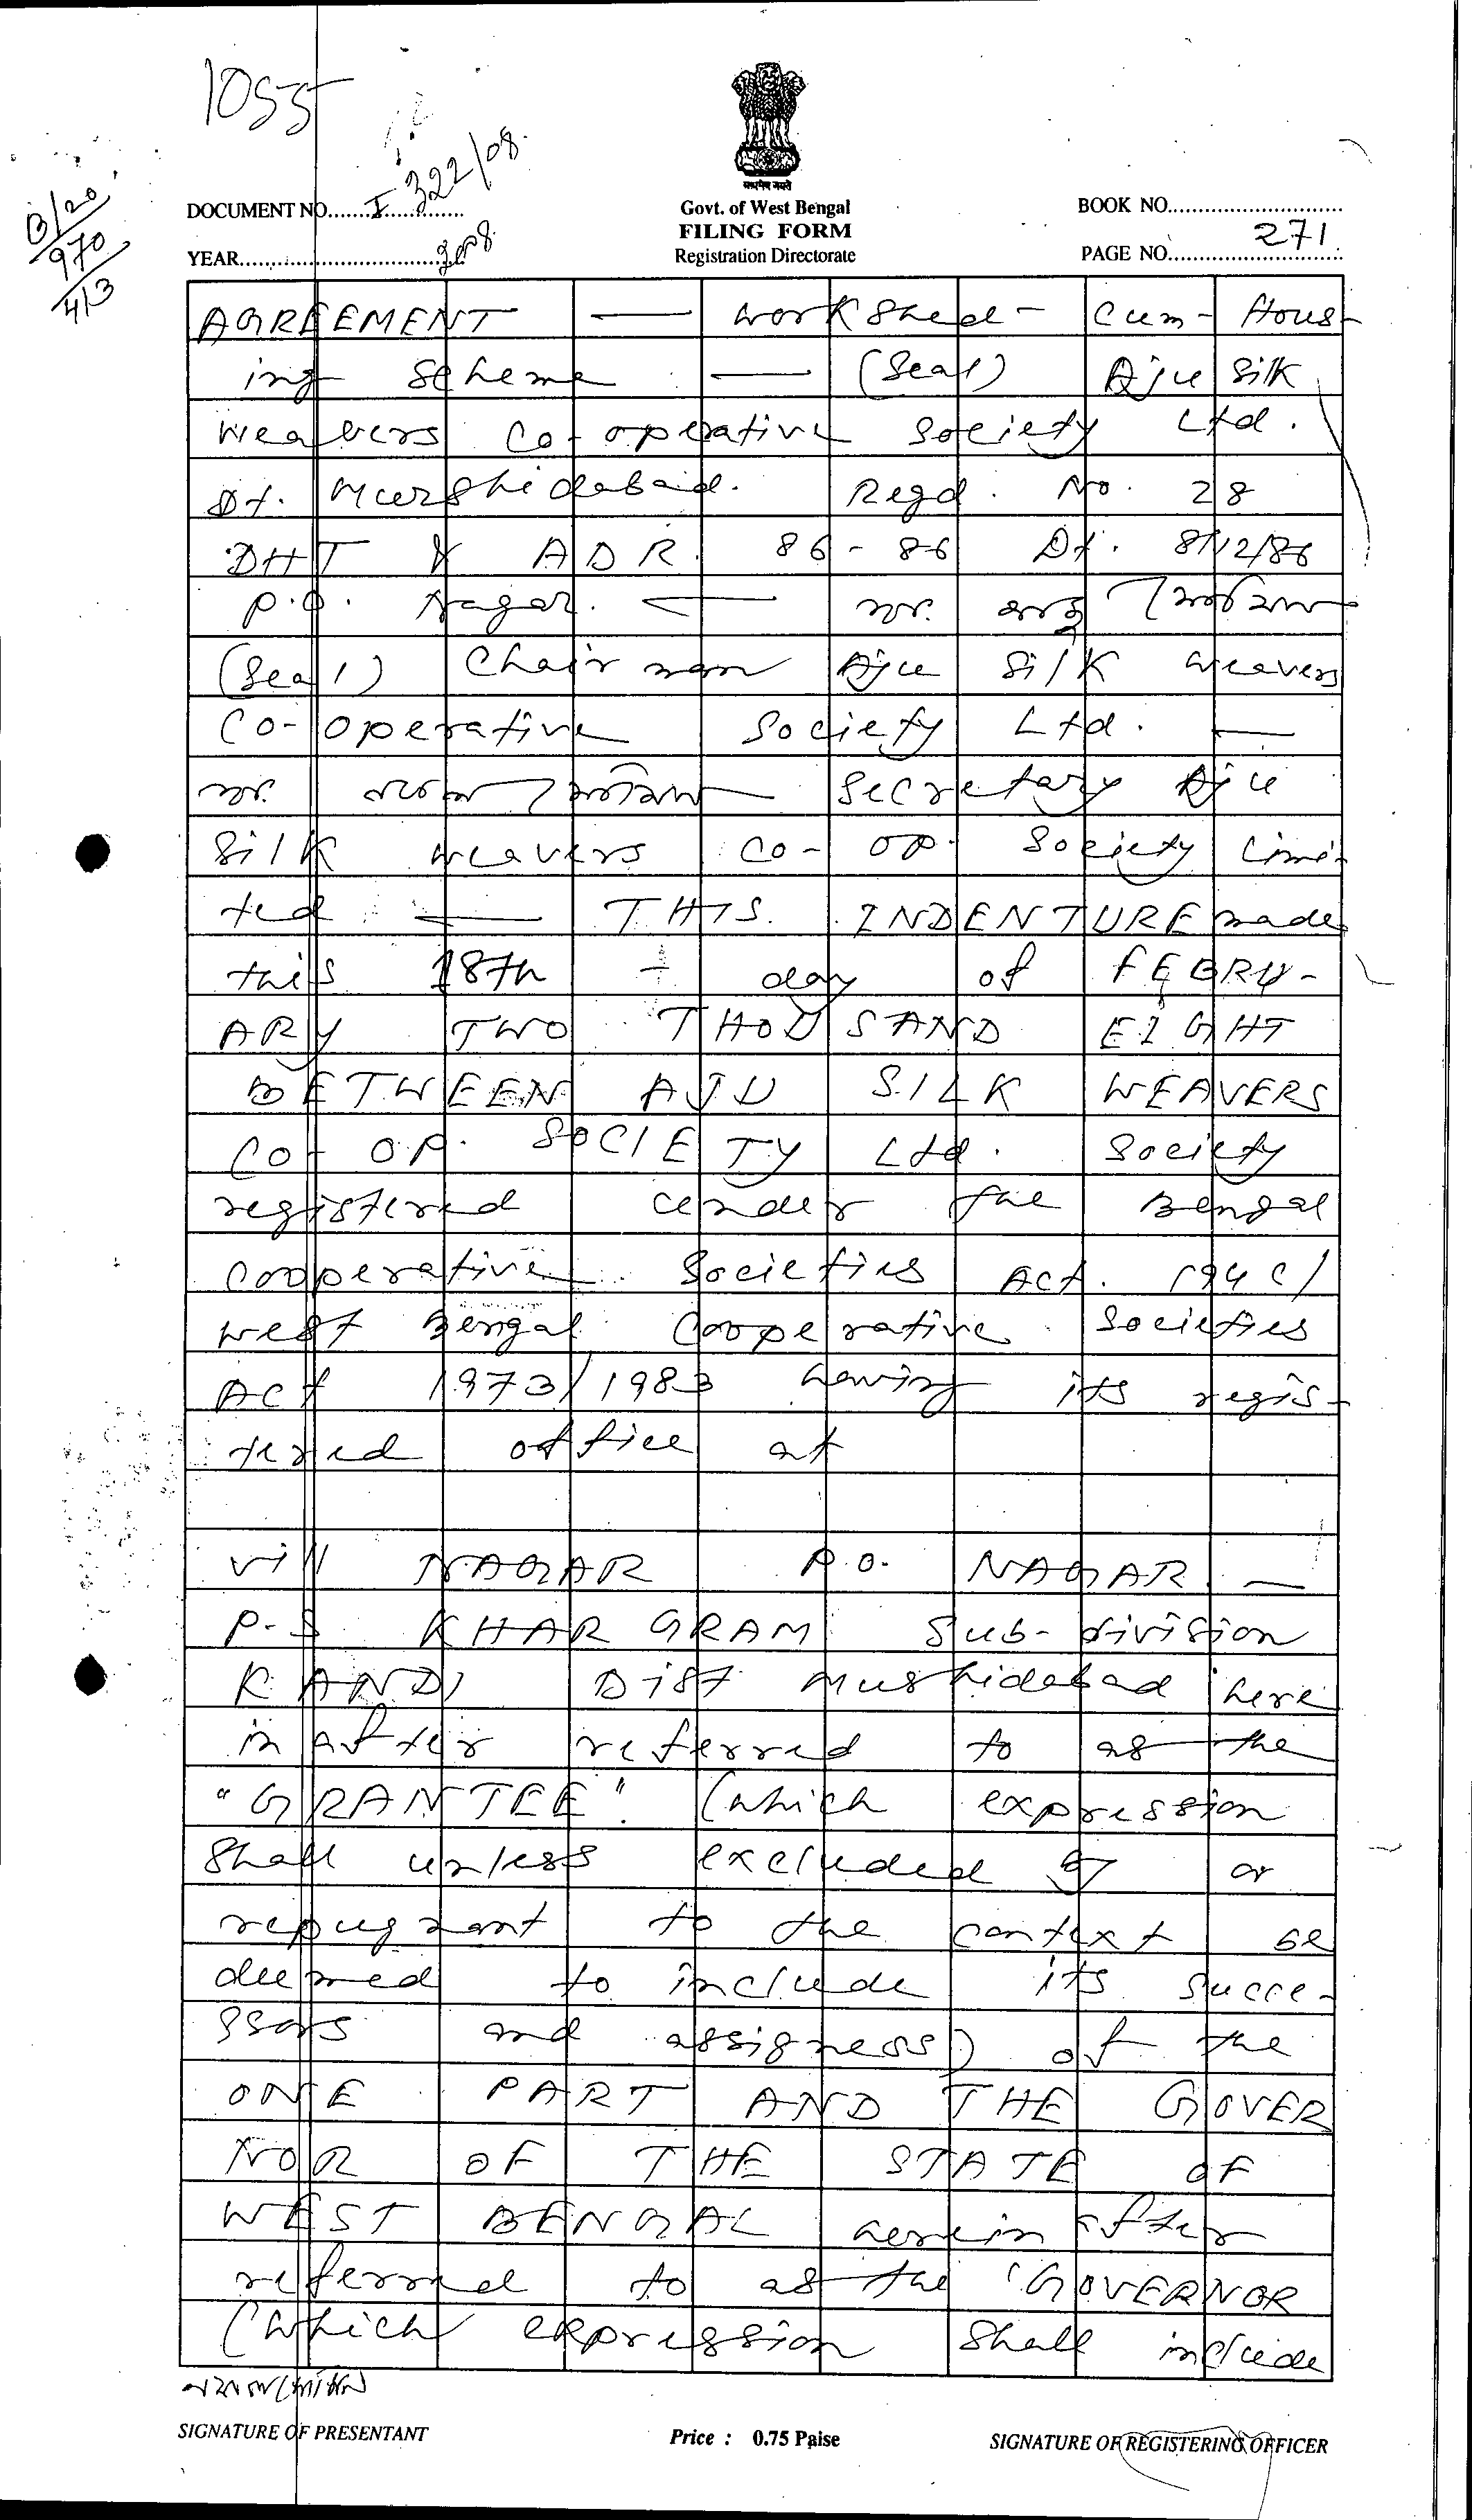 1055
I 322/08.
B/20
970
4/3
सत्यमेव जयते
DOCUMENT NO.
Govt. of West Bengal
BOOK NO.
FILING FORM
271
YEAR 2008
Registration Directorate
PAGE NO.
AGREEMENT — Work Shed - Cum - Hous-
ing Scheme — (Seal) Aju Silk
Weavers Co-operative Society Ltd.
Dt. Murshidabad. Regd. No. 28
DHT & ADR. 86-86 Dt. 8/12/86
P.O. Nagar. — স্বাঃ
(Seal) Chairman Aju Silk Weavers
Co-operative Society Ltd. —
স্বাঃ Secretary Aju
Silk Weavers Co-op. Society Limi-
ted — THIS. INDENTURE made
this 18th - day of FEBRU-
ARY TWO THOUSAND EIGHT
BETWEEN AJU SILK WEAVERS
CO-OP. SOCIETY Ltd. Society
registered under the Bengal
Cooperative Societies Act. 194
West Bengal Cooperative Societies
Act 1973/1983 having its regis-
tered office at
Vill NAGAR P.O. NAGAR —
P-S KHARGRAM Sub-division
KANDI Dist Mushidabad here
in after referred to as the
"GRANTEE". (which expression
Shall unless excluded by or
repugnant to the context be
deemed to include its Succe-
ssors and assigness) of the
ONE PART AND THE GOVER
NOR OF THE STATE OF
WEST BENGAL herein after
referred to as the "GOVERNOR
(which expression Shall include
SIGNATURE OF PRESENTANT
Price : 0.75 Paise
SIGNATURE OF REGISTERING OFFICER